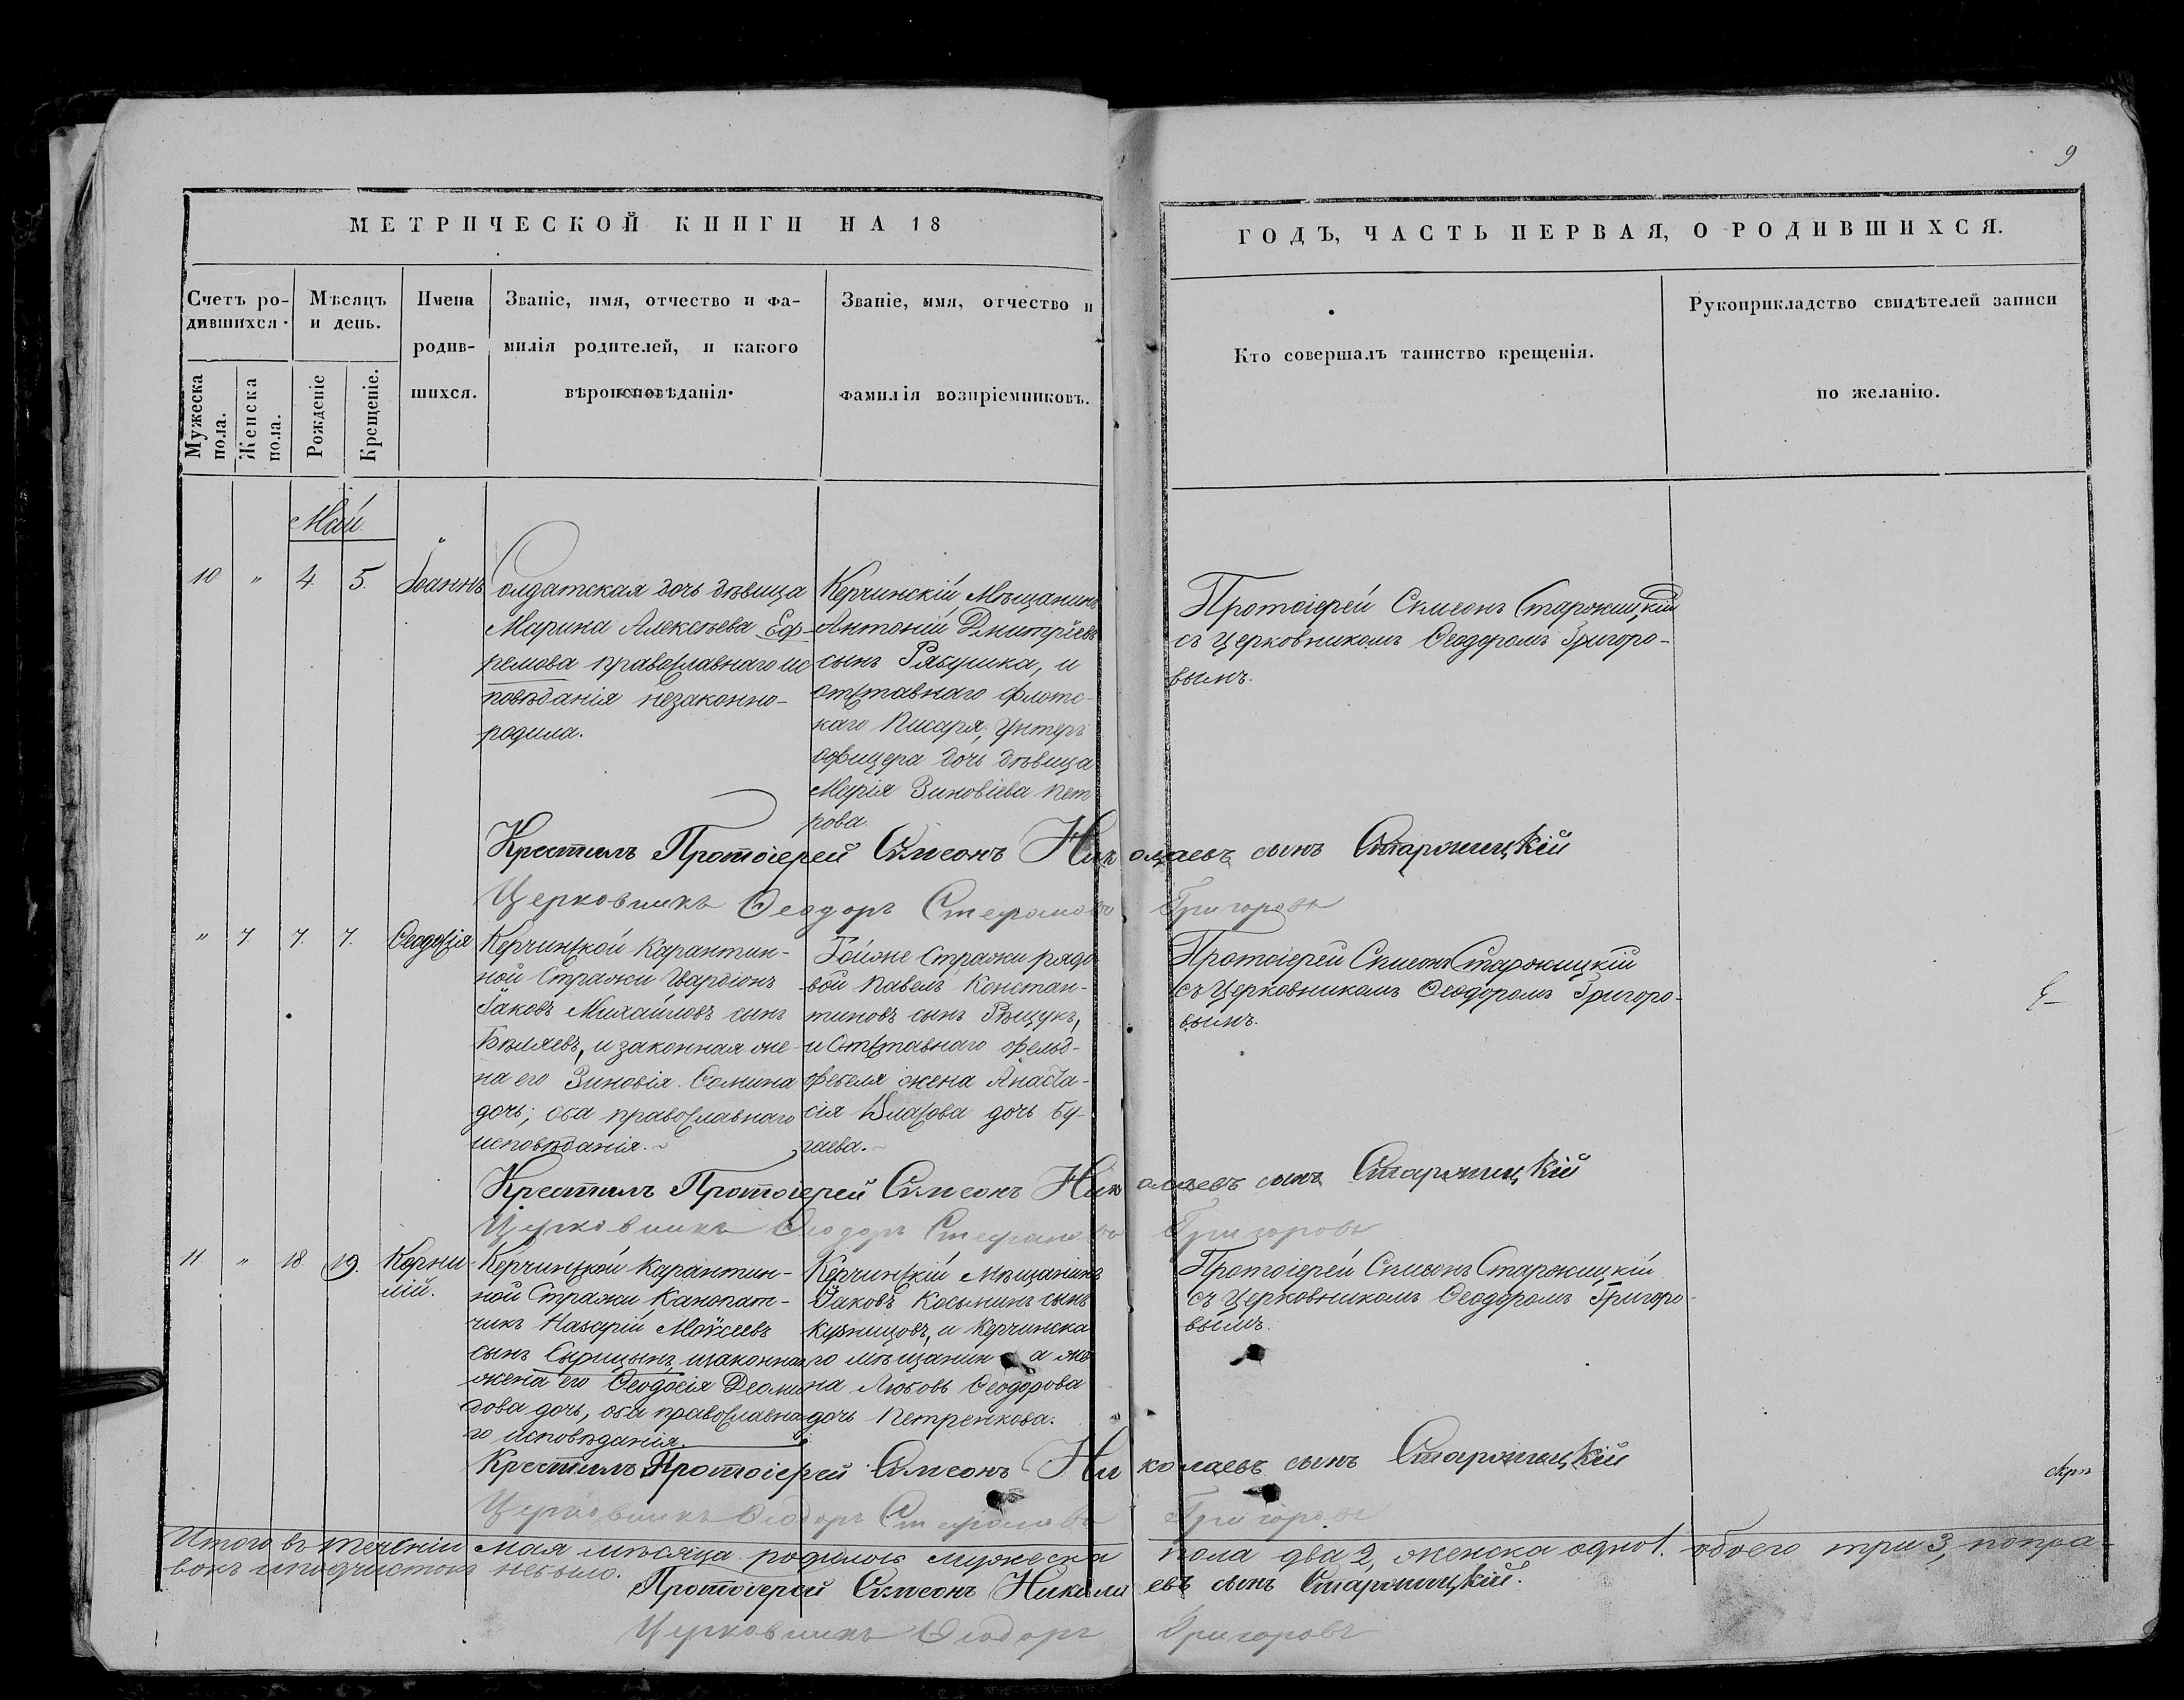 9
МЕТРИЧЕСКОЙ КНИГИ НА 18
ГОДЪ, ЧАСТЬ ПЕРВАЯ, О РОДИВШИХСЯ.
Счетъ ро-
дившихся.
Мужеска
пола.
Женска
пола.
Мѣсяцъ
и день.
Рожденіе
Крещеніе.
Имена
родив-
шихся.
Званіе, имя, отчество и фа-
милія родителей, и какого
вѣроисповѣданія.
Званіе, имя, отчество и
фамилія возпріемниковъ.
Кто совершалъ таинство крещенія.
Рукоприкладство свидѣтелей записи
по желанію.
Май.
10 " 4. 5. Іоаннъ
Солдатская дочь дѣвица
Марина Алексѣева Еф-
ремова православнаго ис
повѣданія незаконно-
родила.
Керчинскій Мѣщанинъ
Антоній Дмитріевъ
сынъ Рябушка, и
отставнаго флотс-
каго Писаря, Унтеръ
офицера дочь дѣвица
Марія Зиновіева Пет
рова.
Протоіерей Симеонъ Старожицкій
съ церковникомъ Ѳеодоромъ Григоро-
вымъ.
Крестилъ Протоіерей Симеонъ Николаевъ сынъ Старожицкій
Церковникъ Ѳеодоръ Стефановъ Григоровъ
" 7 7. 7. Ѳеодосія
Керчинской Карантин-
ной Стражи Гвардіонъ
Іаковъ Михайловъ сынъ
Бѣляевъ, и законная же-
на его Зиновія Ѳомина
дочь; оба православнаго
исповѣданія.
Тойже Стражи рядо
вой Павелъ Констан-
тиновъ сынъ Рѣщукъ,
и Отставнаго фельд-
фебеля жена Анаста-
сія Власова дочь Бу-
гаева.
Протоіерей Симеонъ Старожицкій
съ Церковникомъ Ѳеодоромъ Григоро-
вымъ.
Крестилъ Протоіерей Симеонъ Николаевъ сынъ Старожицкій
Церковникъ Ѳеодоръ Стефановъ Григоровъ
11 " 18 19. Корни-
лій.
Керчинской Карантин-
ной Стражи Канопат-
чикъ Назарій Моѵсеевъ
сынъ Сырицынъ, изаконная
жена его Ѳеодосія Деоми
дова дочь, оба православна
го исповѣданія.
Керчинскій Мѣщанинъ
Іаковъ Косьминъ сынъ
Кузнецовъ, и Керчинска
го мѣщанина же
на Любовь Ѳеодорова
дочь Петренкова.
Протоіерей Симеонъ Старожицкій
съ церковникомъ Ѳеодоромъ Григоро-
вымъ.
Крестилъ Протоіерей Симеонъ Николаевъ сынъ Старожицкій
скрп
Церковникъ Ѳеодоръ Стефановъ Григоровъ
Итого въ теченіи мая мѣсяца родилось мужеска пола два 2, женска одно 1. обоего три 3, попра-
вокъ иподчистокъ небыло.
Протоіерей Симеонъ Николаевъ сынъ Старожицкій.
Церковникъ Ѳеодоръ Григоровъ